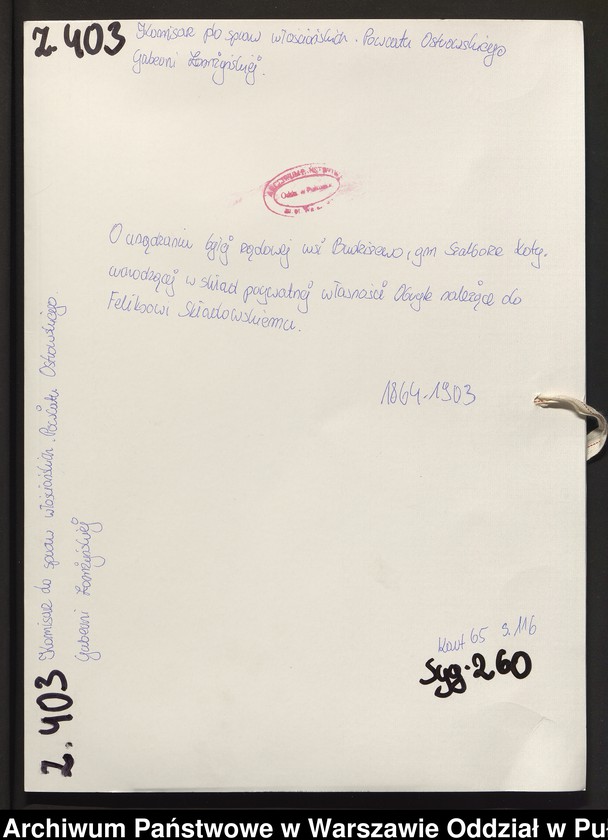 Z. 403 Komisarz do spraw włościańskich. Powiatu Ostrowskiego
Guberni Łomżyńskiej.
Oddz. w Pułtusku
O urządzeniu byłej rządowej wsi Budziszewo, gm Szulborze Koty.
wchodzącej w skład prywatnej własności należące do
Feliksowi Składowskiemu.
1864-1903
Kart 65 s. 116
Syg. 260
Z. 403 Komisarz do spraw włościańskich. Powiatu Ostrowskiego.
Guberni Łomżyńskiej
Archiwum Państwowe w Warszawie Oddział w Pu